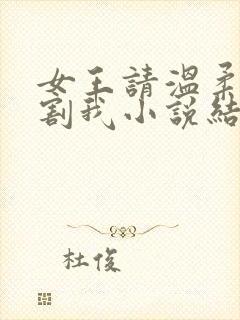 女王請溫柔
割我小說結
杜俊